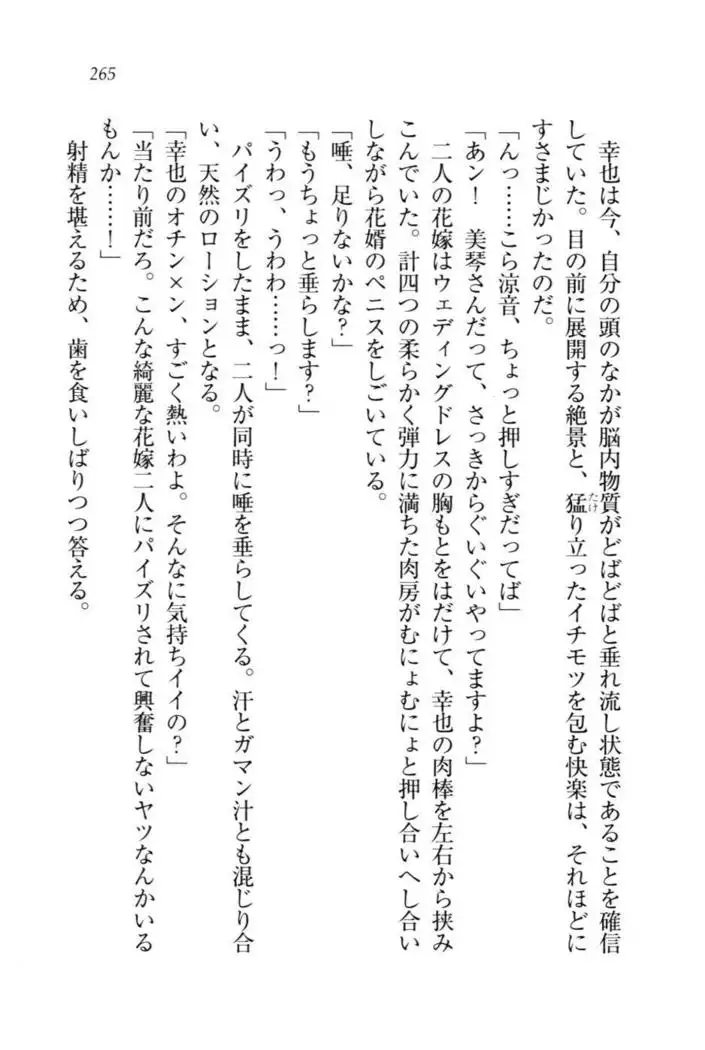 265
幸也は今、自分の頭のなかが脳内物質がどばどばと垂れ流し状態であることを確信
していた。目の前に展開する絶景と、猛り立ったイチモツを包む快楽は、それほどに
すさまじかったのだ。
「んっ……こら涼音、ちょっと押しすぎだってば」
「あン！　美琴さんだって、さっきからぐいぐいやってますよ？」
二人の花嫁はウェディングドレスの胸もとをはだけて、幸也の肉棒を左右から挟み
こんでいた。計四つの柔らかく弾力に満ちた肉房がむにょむにょと押し合いへし合い
しながら花婿のペニスをしごいている。
「唾、足りないかな？」
「もうちょっと垂らします？」
「うわっ、うわわ……っ！」
パイズリをしたまま、二人が同時に唾を垂らしてくる。汗とガマン汁とも混じり合
い、天然のローションとなる。
「幸也のオチン×ン、すごく熱いわよ。そんなに気持ちイイの？」
「当たり前だろ。こんな綺麗な花嫁二人にパイズリされて興奮しないヤツなんかいる
もんか……！」
射精を堪えるため、歯を食いしばりつつ答える。
たけ